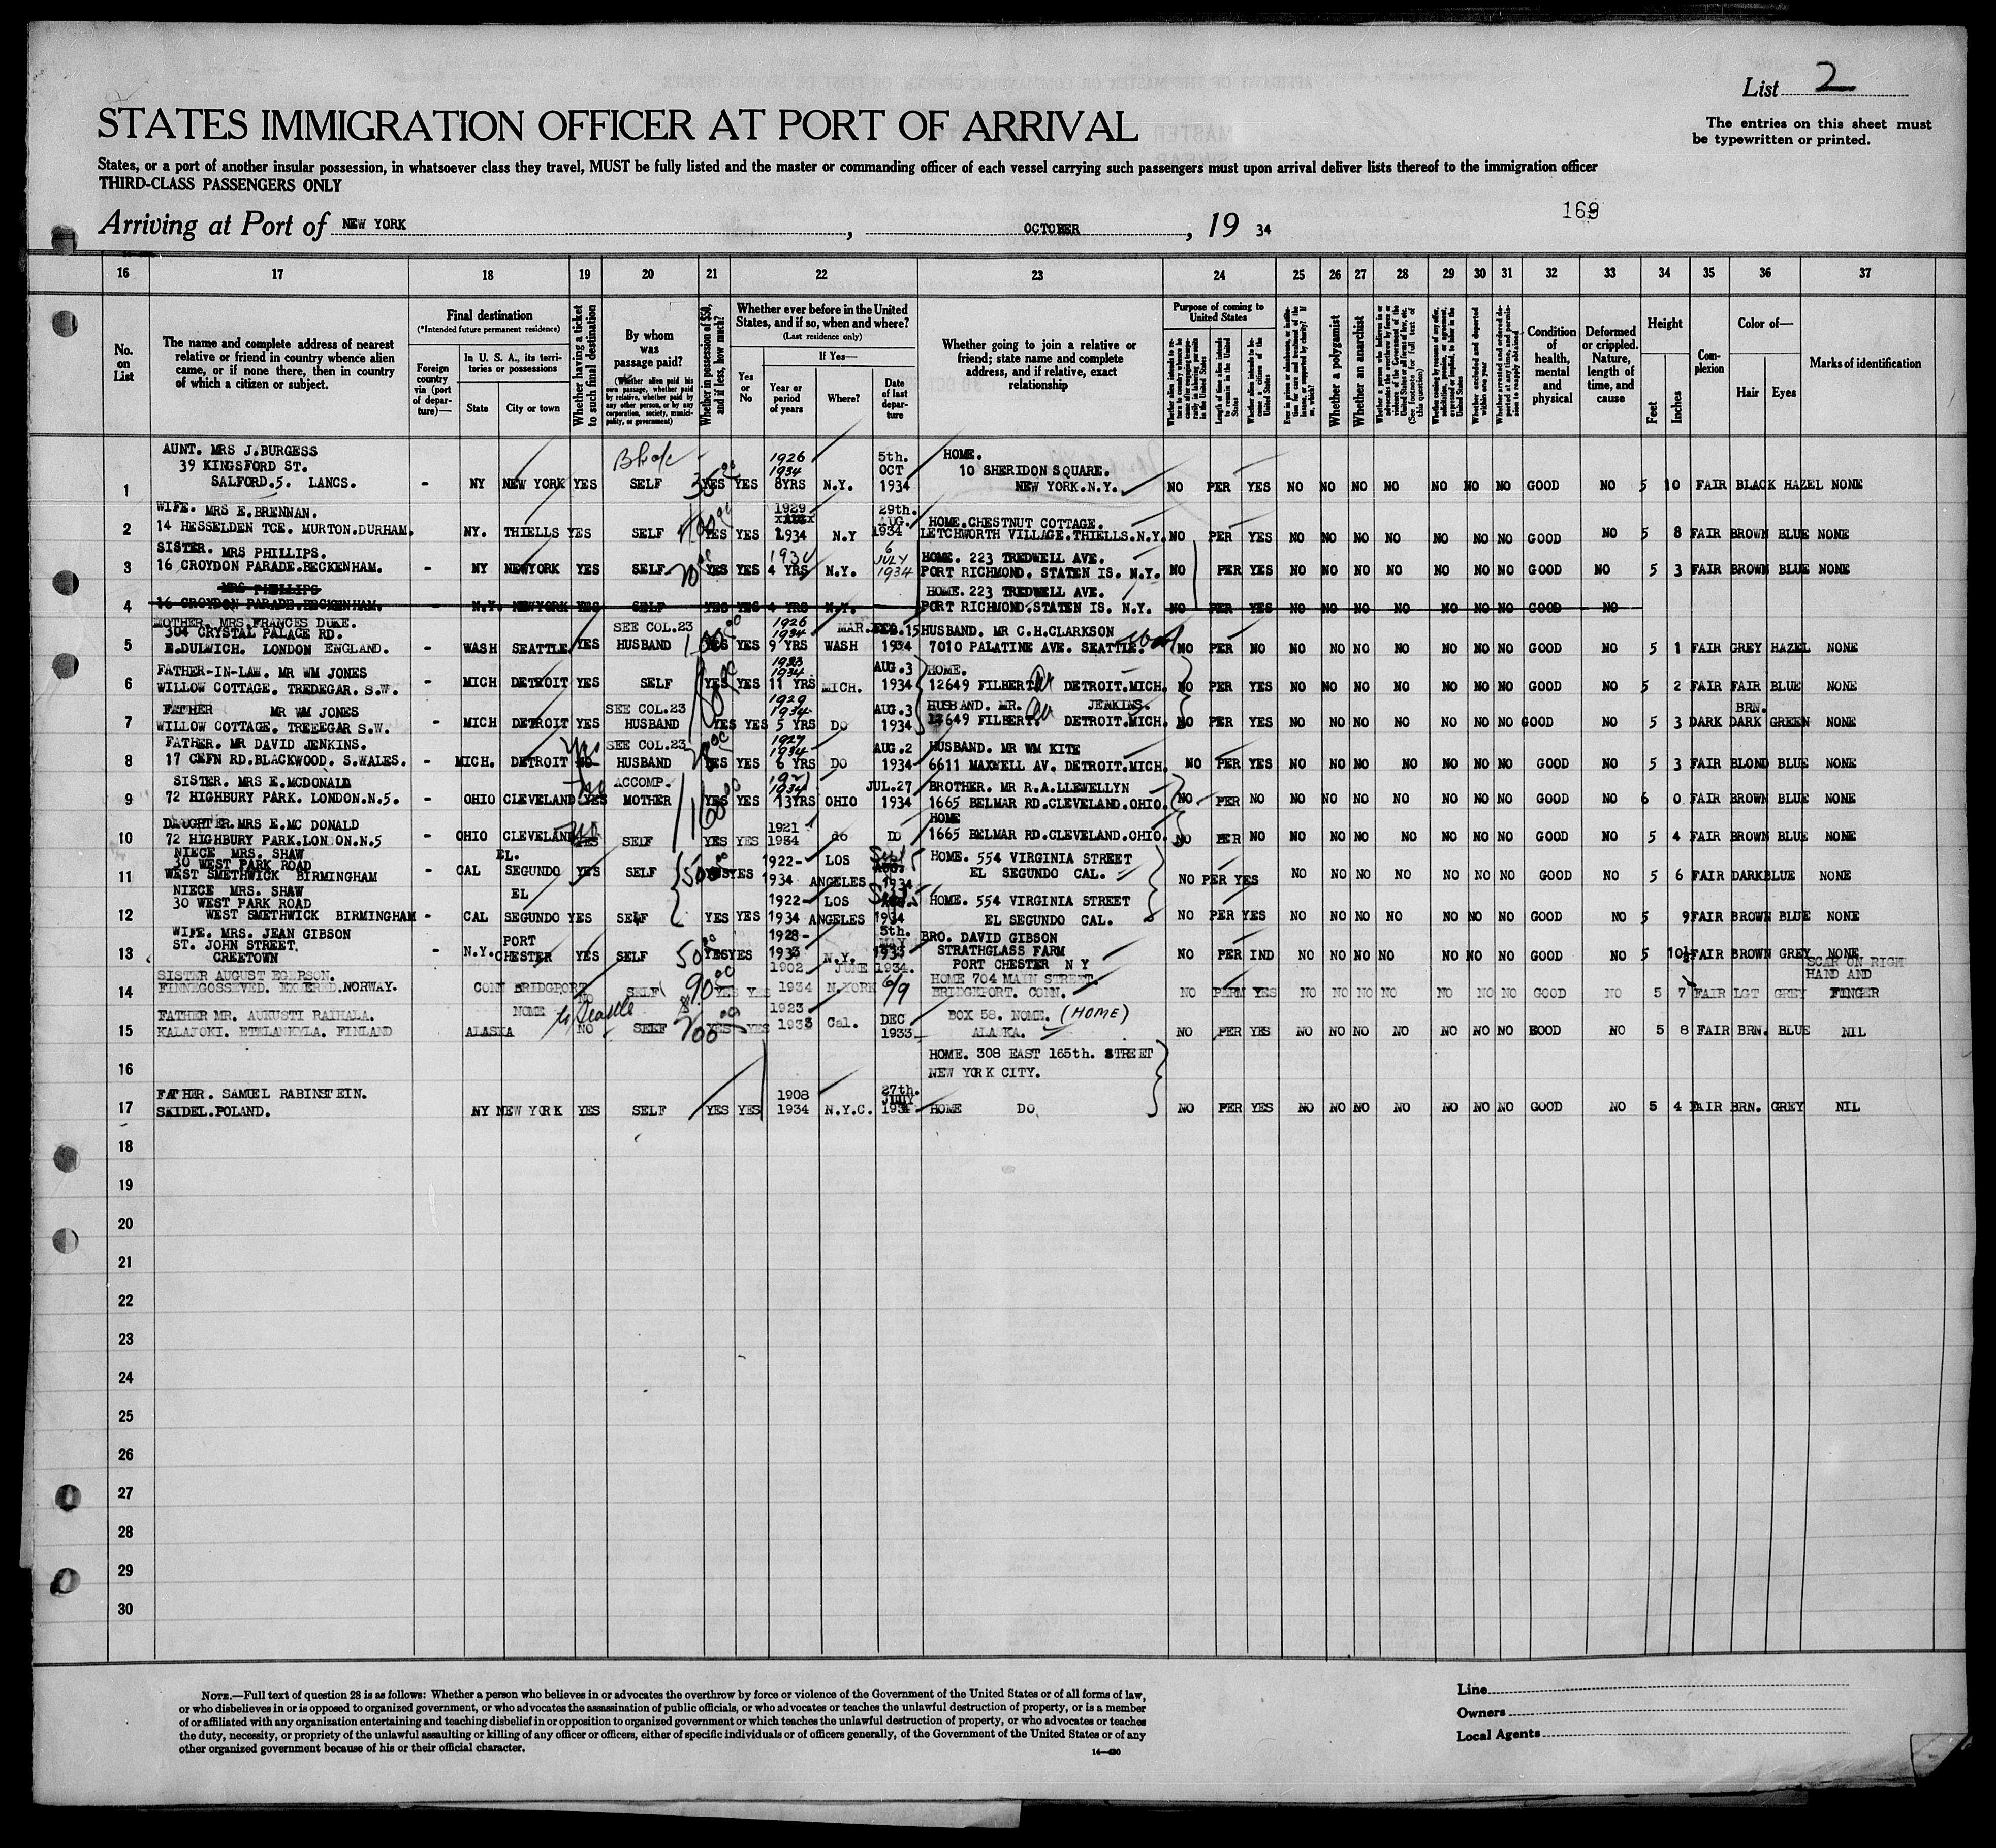 List 2
The entries on this sheet must
be typewritten or printed.
STATES IMMIGRATION OFFICER AT PORT OF ARRIVAL
States, or a port of another insular possession, in whatsoever class they travel, MUST be fully listed and the master or commanding officer of each vessel carrying such passengers must upon arrival deliver lists thereof to the immigration officer
THIRD-CLASS PASSENGERS ONLY
169
Arriving at Port of NEW YORK , OCTOBER , 19 34
16 17 18 19 20 21 22 23 24 25 26 27 28 29 30 31 32 33 34 35 36 37
No. on List
The name and complete address of nearest relative or friend in country whence alien came, or if none there, then in country of which a citizen or subject.
Final destination
(*Intended future permanent residence)
Foreign country via (port of departure)—
In U. S. A., its territories or possessions
State
City or town
Whether having a ticket to such final destination
By whom was passage paid?
(Whether alien paid his own passage, whether paid by relative, whether paid by any other person, or by any corporation, society, municipality, or government)
Whether in possession of $50, and if less, how much?
Whether ever before in the United States, and if so, when and where?
(Last residence only)
Yes or No
If Yes—
Year or period of years
Where?
Date of last departure
Whether going to join a relative or friend; state name and complete address, and if relative, exact relationship
Purpose of coming to United States
Length of time alien intends to remain in the United States
Whether alien intends to become a citizen of the United States
Whether a polygamist
Whether an anarchist
Whether excluded and deported within one year
Condition of health, mental and physical
Deformed or crippled. Nature, length of time, and cause
Height
Feet
Inches
Complexion
Color of—
Hair
Eyes
Marks of identification
AUNT. MRS J.BURGESS 1926 5th. HOME.
39 KINGSFORD ST. 1934 OCT 10 SHERIDON SQUARE.
1 SALFORD.5. LANCS. - NY NEW YORK YES SELF YES YES 8YRS N.Y. 1934 NEW YORK.N.Y. NO PER YES NO NO NO NO NO NO NO GOOD NO 5 10 FAIR BLACK HAZEL NONE
WIFE. MRS E.BRENNAN. 1929 29th. AUG. HOME.CHESTNUT COTTAGE.
2 14 HESSELDEN TCE. MURTON.DURHAM. NY. THIELLS YES SELF YES YES 1934 N.Y 1934 LETCHWORTH VILLAGE.THIELLS.N.Y. NO PER YES NO NO NO NO NO NO NO GOOD NO 5 8 FAIR BROWN BLUE NONE
SISTER. MRS PHILLIPS. 1934 6 JULY HOME. 223 TREDWELL AVE.
3 16 CROYDON PARADE.BECKENHAM. - NY NEWYORK YES SELF 70 YES YES 4 YRS N.Y. 1934 PORT RICHMOND. STATEN IS. N.Y. NO PER YES NO NO NO NO NO NO NO GOOD NO 5 3 FAIR BROWN BLUE NONE
MRS PHILLIPS HOME. 223 TREDWELL AVE.
4 16 CROYDON PARADE.BECKENHAM. - N.Y. NEWYORK YES SELF YES YES 4 YRS N.Y. PORT RICHMOND.STATEN IS. N.Y. NO PER YES NO NO NO NO NO NO NO GOOD NO
MOTHER. MRS.FRANCES DUKE. 1926
304 CRYSTAL PALACE RD. SEE COL.23 1934 MAR. 15 HUSBAND. MR C.H.CLARKSON
5 E.DULWICH. LONDON ENGLAND. - WASH SEATTLE YES HUSBAND YES YES 9 YRS WASH 1934 7010 PALATINE AVE. SEATTLE. NO PER NO NO NO NO NO NO NO NO GOOD NO 5 1 FAIR GREY HAZEL NONE
FATHER-IN-LAW. MR WM JONES 1923 1934 AUG.3 HOME.
6 WILLOW COTTAGE. TREDEGAR. S.W. - MICH DETROIT YES SELF YES YES 11 YRS MICH. 1934 12649 FILBERT DETROIT.MICH. NO PER YES NO NO NO NO NO NO NO GOOD NO 5 2 FAIR FAIR BLUE NONE
FATHER MR WM JONES SEE COL.23 1929 1934 AUG.3 HUSBAND. MR. JENKINS. BRN.
7 WILLOW COTTAGE. TREEEGAR S.W. - MICH DETROIT YES HUSBAND YES YES 5 YRS DO 1934 12649 FILBERT. DETROIT.MICH. NO PER YES NO NO NO NO NO NO NO GOOD NO 5 3 DARK DARK GREEN NONE
FATHER. MR DAVID JENKINS. SEE COL.23 1927 1934 AUG.2 HUSBAND. MR WM KITE
8 17 CEFN RD.BLACKWOOD. S.WALES. - MICH. DETROIT NO HUSBAND YES YES 6 YRS DO 1934 6611 MAXWELL AV. DETROIT.MICH. NO PER YES NO NO NO NO NO NO NO GOOD NO 5 3 FAIR BLOND BLUE NONE
SISTER. MRS E.MCDONALD ACCOMP. 1921 1934 JUL.27 BROTHER. MR R.A.LLEWELLYN
9 72 HIGHBURY PARK. LONDON.N.5. - OHIO CLEVELAND YES MOTHER YES YES 13YRS OHIO 1934 1665 BELMAR RD.CLEVELAND.OHIO. NO PER NO NO NO NO NO NO NO NO GOOD NO 6 0 FAIR BROWN BLUE NONE
DAUGHTER.MRS E.MC DONALD 1921 HOME
10 72 HIGHBURY PARK.LONDON.N.5 - OHIO CLEVELAND YES SELF YES YES 1934 do DO 1665 BELMAR RD.CLEVELAND.OHIO. NO PER NO NO NO NO NO NO NO NO GOOD NO 5 4 FAIR BROWN BLUE NONE
NIECE MRS. SHAW EL.
30 WEST PARK ROAD 1922- LOS Sept HOME. 554 VIRGINIA STREET
11 WEST SMETHWICK BIRMINGHAM CAL SEGUNDO YES SELF YES YES 1934 ANGELES 1934 EL SEGUNDO CAL. NO PER YES NO NO NO NO NO NO NO GOOD NO 5 6 FAIR DARK BLUE NONE
NIECE MRS. SHAW EL
30 WEST PARK ROAD 1922- LOS Sept HOME. 554 VIRGINIA STREET
12 WEST SMETHWICK BIRMINGHAM - CAL SEGUNDO YES SELF YES YES 1934 ANGELES 1934 EL SEGUNDO CAL. NO PER YES NO NO NO NO NO NO NO GOOD NO 5 9 FAIR BROWN BLUE NONE
WIFE. MRS. JEAN GIBSON PORT 1928- 5th. MAY BRO. DAVID GIBSON
ST. JOHN STREET. STRATHGLASS FARM
13 CREETOWN - N.Y. CHESTER YES SELF 50 YES YES 1933 N.Y. 1933 PORT CHESTER N Y NO PER IND NO NO NO NO NO NO NO GOOD NO 5 10½ FAIR BROWN GREY NONE
SISTER AUGUST EGERSON. 1902 JUNE 1934. HOME 704 MAIN STREET. SCAR ON RIGHT HAND AND
14 FINNEGOSSEVED. EXGERED.NORWAY. CONN BRIDGPORT NO SELF 90 YES YES 1934 N.YORK 6/9 BRIDGEPORT. CONN. NO PERM YES NO NO NO NO NO NO NO GOOD NO 5 7 FAIR LGT GREY FINGER
FATHER MR. AUKUSTI RAIHALA. NOME to Seattle 1923 DEC BOX 58. NOME. (HOME)
15 KALAJOKI. ETELANKYLA. FINLAND ALASKA NO SELF 200 YES YES 1933 Cal. 1933 ALASKA. NO PER YES NO NO NO NO NO NO NO GOOD NO 5 8 FAIR BRN. BLUE NIL
16 HOME. 308 EAST 165th. STREET
NEW YORK CITY.
FATHER. SAMUEL RABINSTEIN. 1908 27th. JULY
17 SKIDEL.POLAND. NY NEW YORK YES SELF YES YES 1934 N.Y.C. 1934 HOME DO NO PER YES NO NO NO NO NO NO NO GOOD NO 5 4 FAIR BRN. GREY NIL
18
19
20
21
22
23
24
25
26
27
28
29
30
NOTE.—Full text of question 28 is as follows: Whether a person who believes in or advocates the overthrow by force or violence of the Government of the United States or of all forms of law,
or who disbelieves in or is opposed to organized government, or who advocates the assassination of public officials, or who advocates or teaches the unlawful destruction of property, or is a member
of or affiliated with any organization entertaining and teaching disbelief in or opposition to organized government or which teaches the unlawful destruction of property, or who advocates or teaches
the duty, necessity, or propriety of the unlawful assaulting or killing of any officer or officers, either of specific individuals or of officers generally, of the Government of the United States or of any
other organized government because of his or their official character.
14—430
Line
Owners
Local Agents